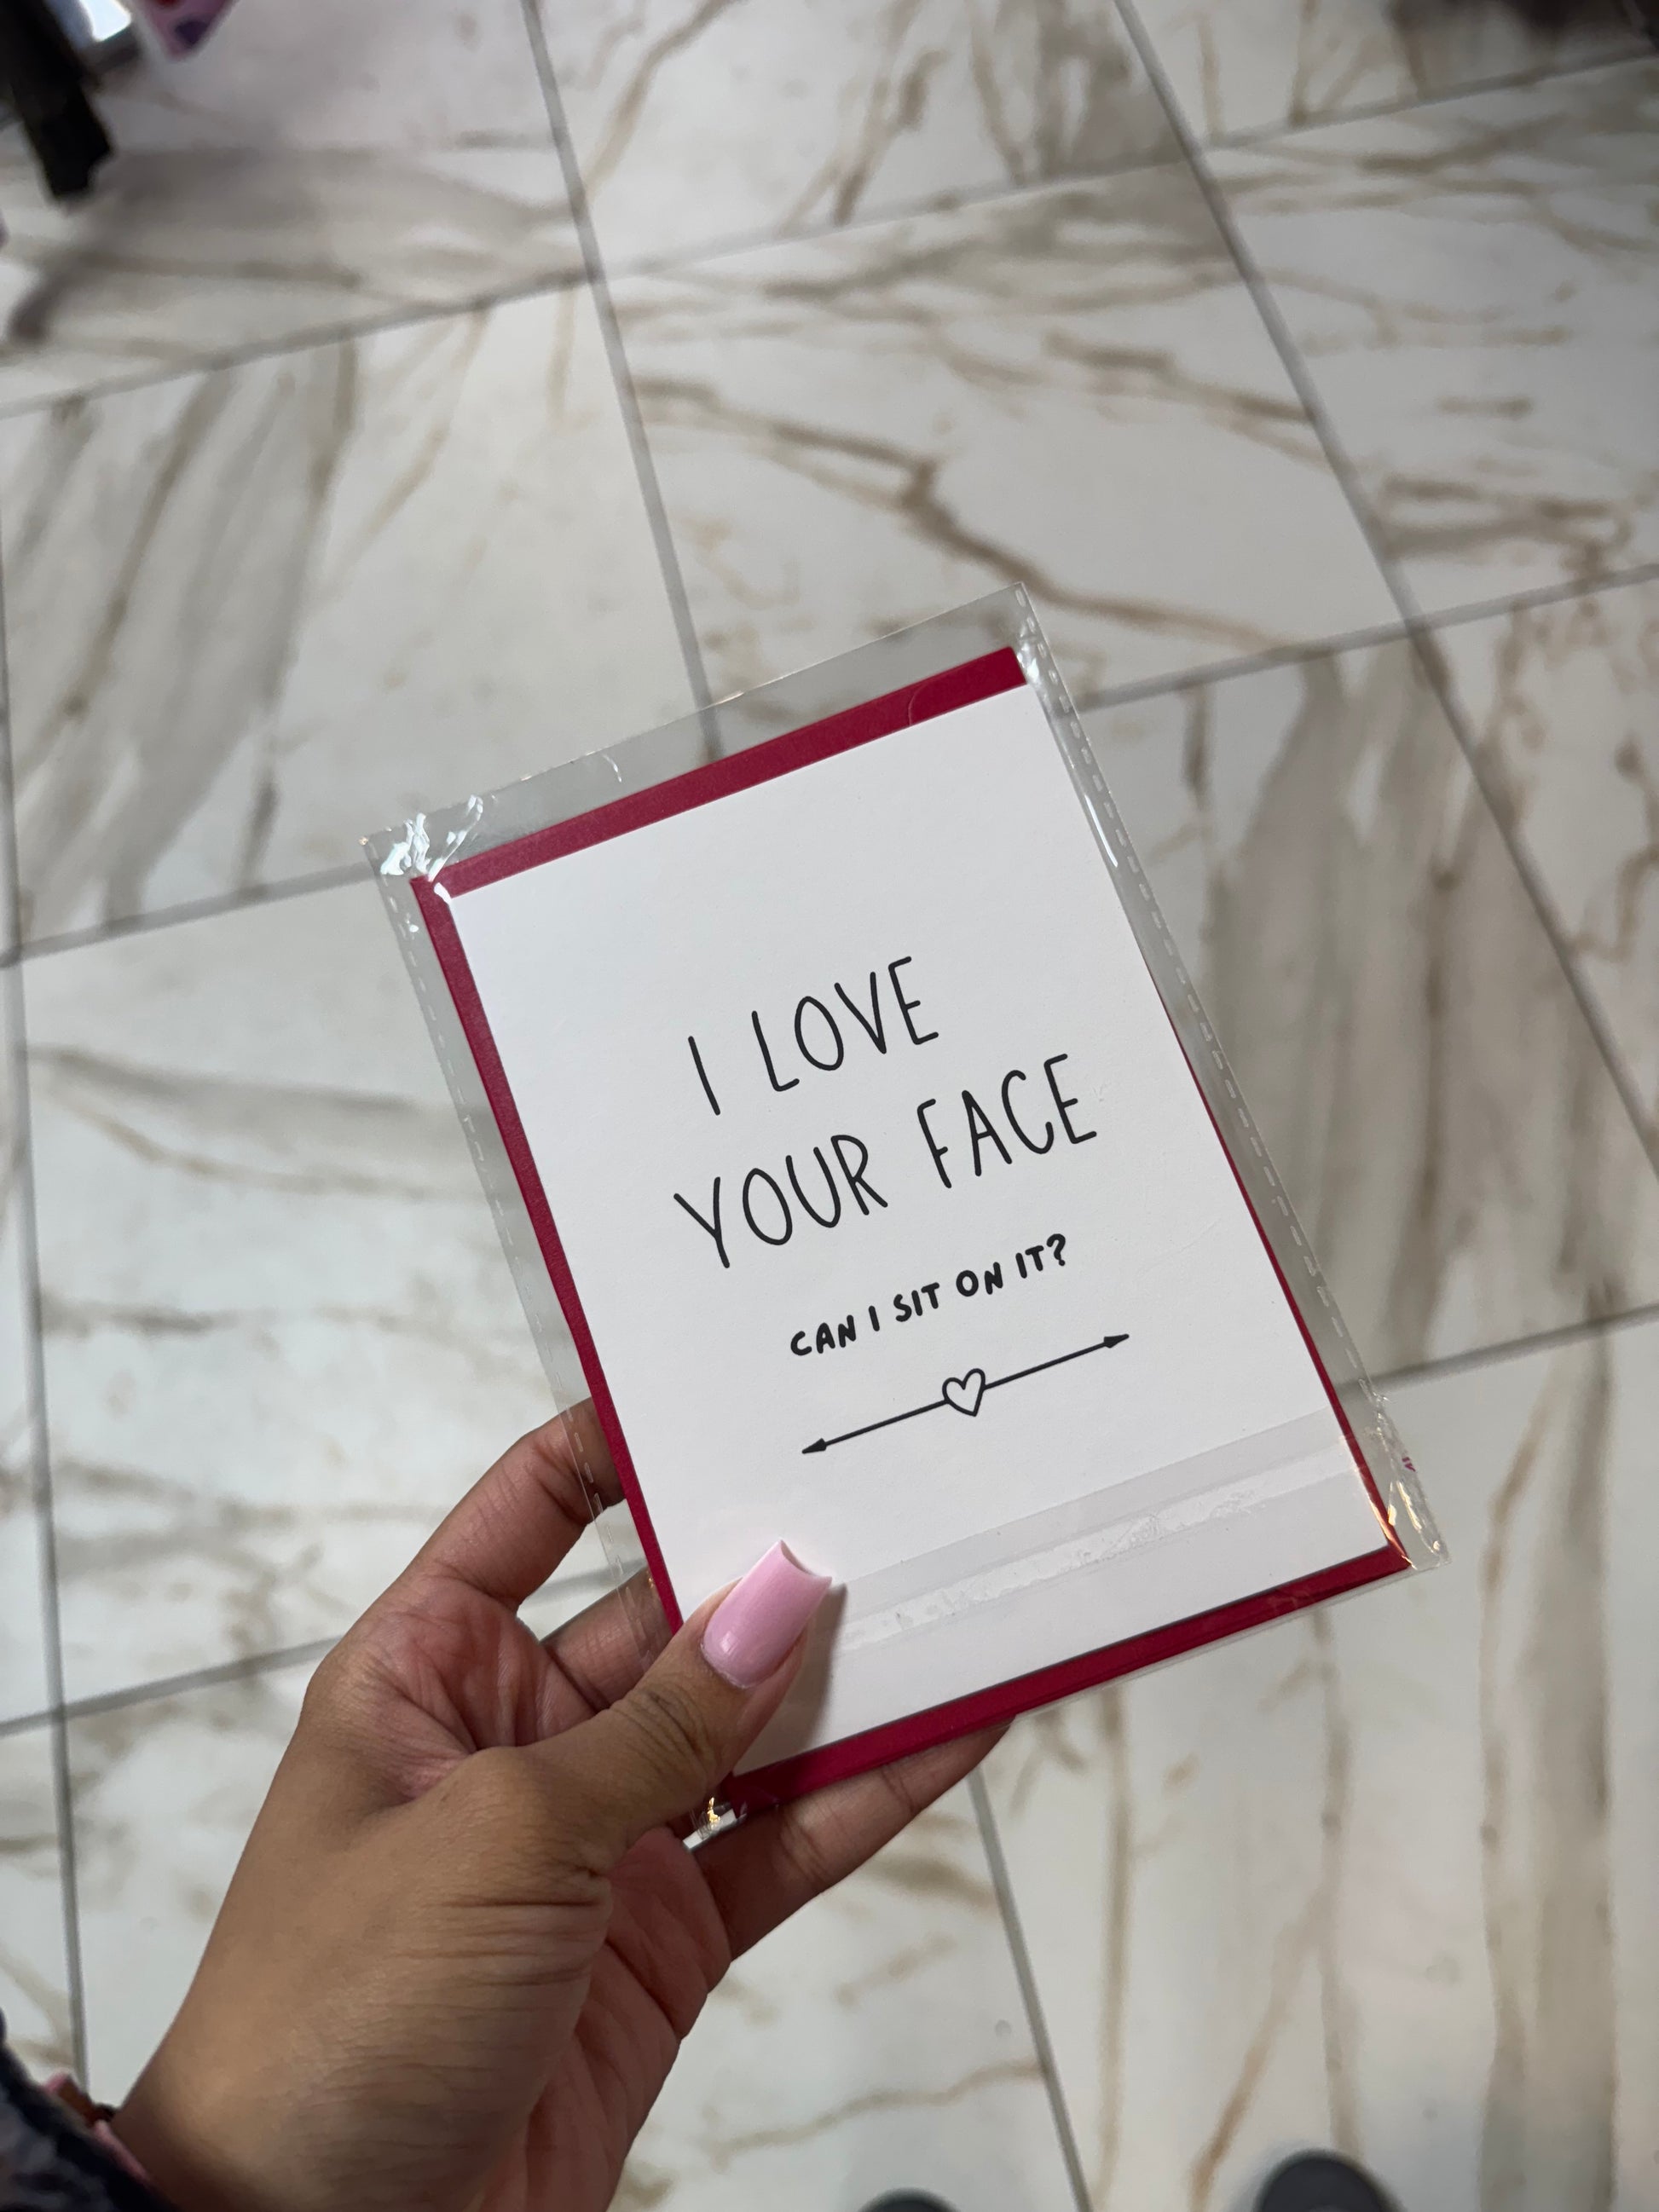 I LOVE
YOUR FACE
CAN I SIT ON IT?